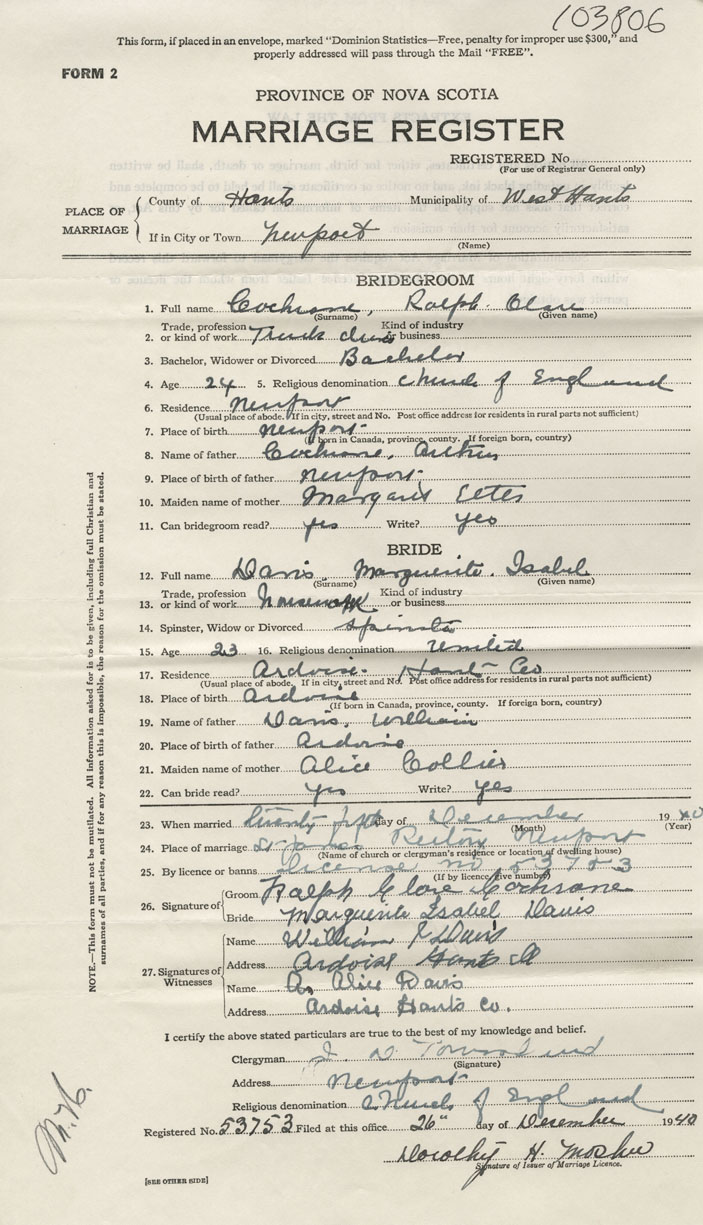 103806
This form, if placed in an envelope, marked "Dominion Statistics—Free, penalty for improper use $300," and
properly addressed will pass through the Mail "FREE".
FORM 2
PROVINCE OF NOVA SCOTIA
MARRIAGE REGISTER
REGISTERED No
(For use of Registrar General only)
PLACE OF MARRIAGE
County of Hants Municipality of West Hants
If in City or Town Newport
(Name)
BRIDEGROOM
1. Full name Cochrane, Ralph
(Surname) (Given name)
Trade, profession Kind of industry
2. or kind of work Truck or business
3. Bachelor, Widower or Divorced Bachelor
4. Age 24 5. Religious denomination Church of England
6. Residence Newport
(Usual place of abode. If in city, street and No. Post office address for residents in rural parts not sufficient)
7. Place of birth Newport
(If born in Canada, province, county. If foreign born, country)
8. Name of father Cochrane,
9. Place of birth of father Newport
10. Maiden name of mother Margaret
11. Can bridegroom read? yes Write? yes
BRIDE
12. Full name Davis, Marguerite Isabel
(Surname) (Given name)
Trade, profession Kind of industry
13. or kind of work or business
14. Spinster, Widow or Divorced Spinster
15. Age 23 16. Religious denomination United
17. Residence Ardoise Hants Co
(Usual place of abode. If in city, street and No. Post office address for residents in rural parts not sufficient)
18. Place of birth Ardoise
(If born in Canada, province, county. If foreign born, country)
19. Name of father Davis, William
20. Place of birth of father Ardoise
21. Maiden name of mother Alice Collier
22. Can bride read? yes Write? yes
23. When married twenty fifth day of December 1940
(Month) (Year)
24. Place of marriage Rectory Newport
(Name of church or clergyman's residence or location of dwelling house)
25. By licence or banns Licence no 53753
(If by licence, give number)
26. Signature of
Groom Ralph Cochrane
Bride Marguerite Isabel Davis
27. Signatures of Witnesses
Name William Davis
Address Ardoise Hants Co
Name Alice Davis
Address Ardoise Hants Co.
I certify the above stated particulars are true to the best of my knowledge and belief.
Clergyman
(Signature)
Address Newport
Religious denomination Church of England
Registered No. 53753 Filed at this office 26" day of December 1940
Dorothy H. Mosher
Signature of Issuer of Marriage Licence.
[SEE OTHER SIDE]
NOTE.—This form must not be mutilated. All information asked for is to be given, including full Christian and
surnames of all parties, and if for any reason this is impossible, the reason for the omission must be stated.